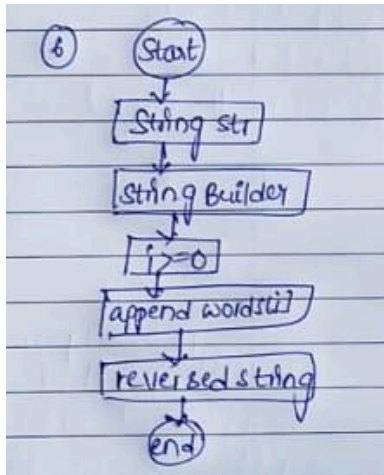 6
Start
String str
String Builder
i>=0
append words[i]
reversed string
end